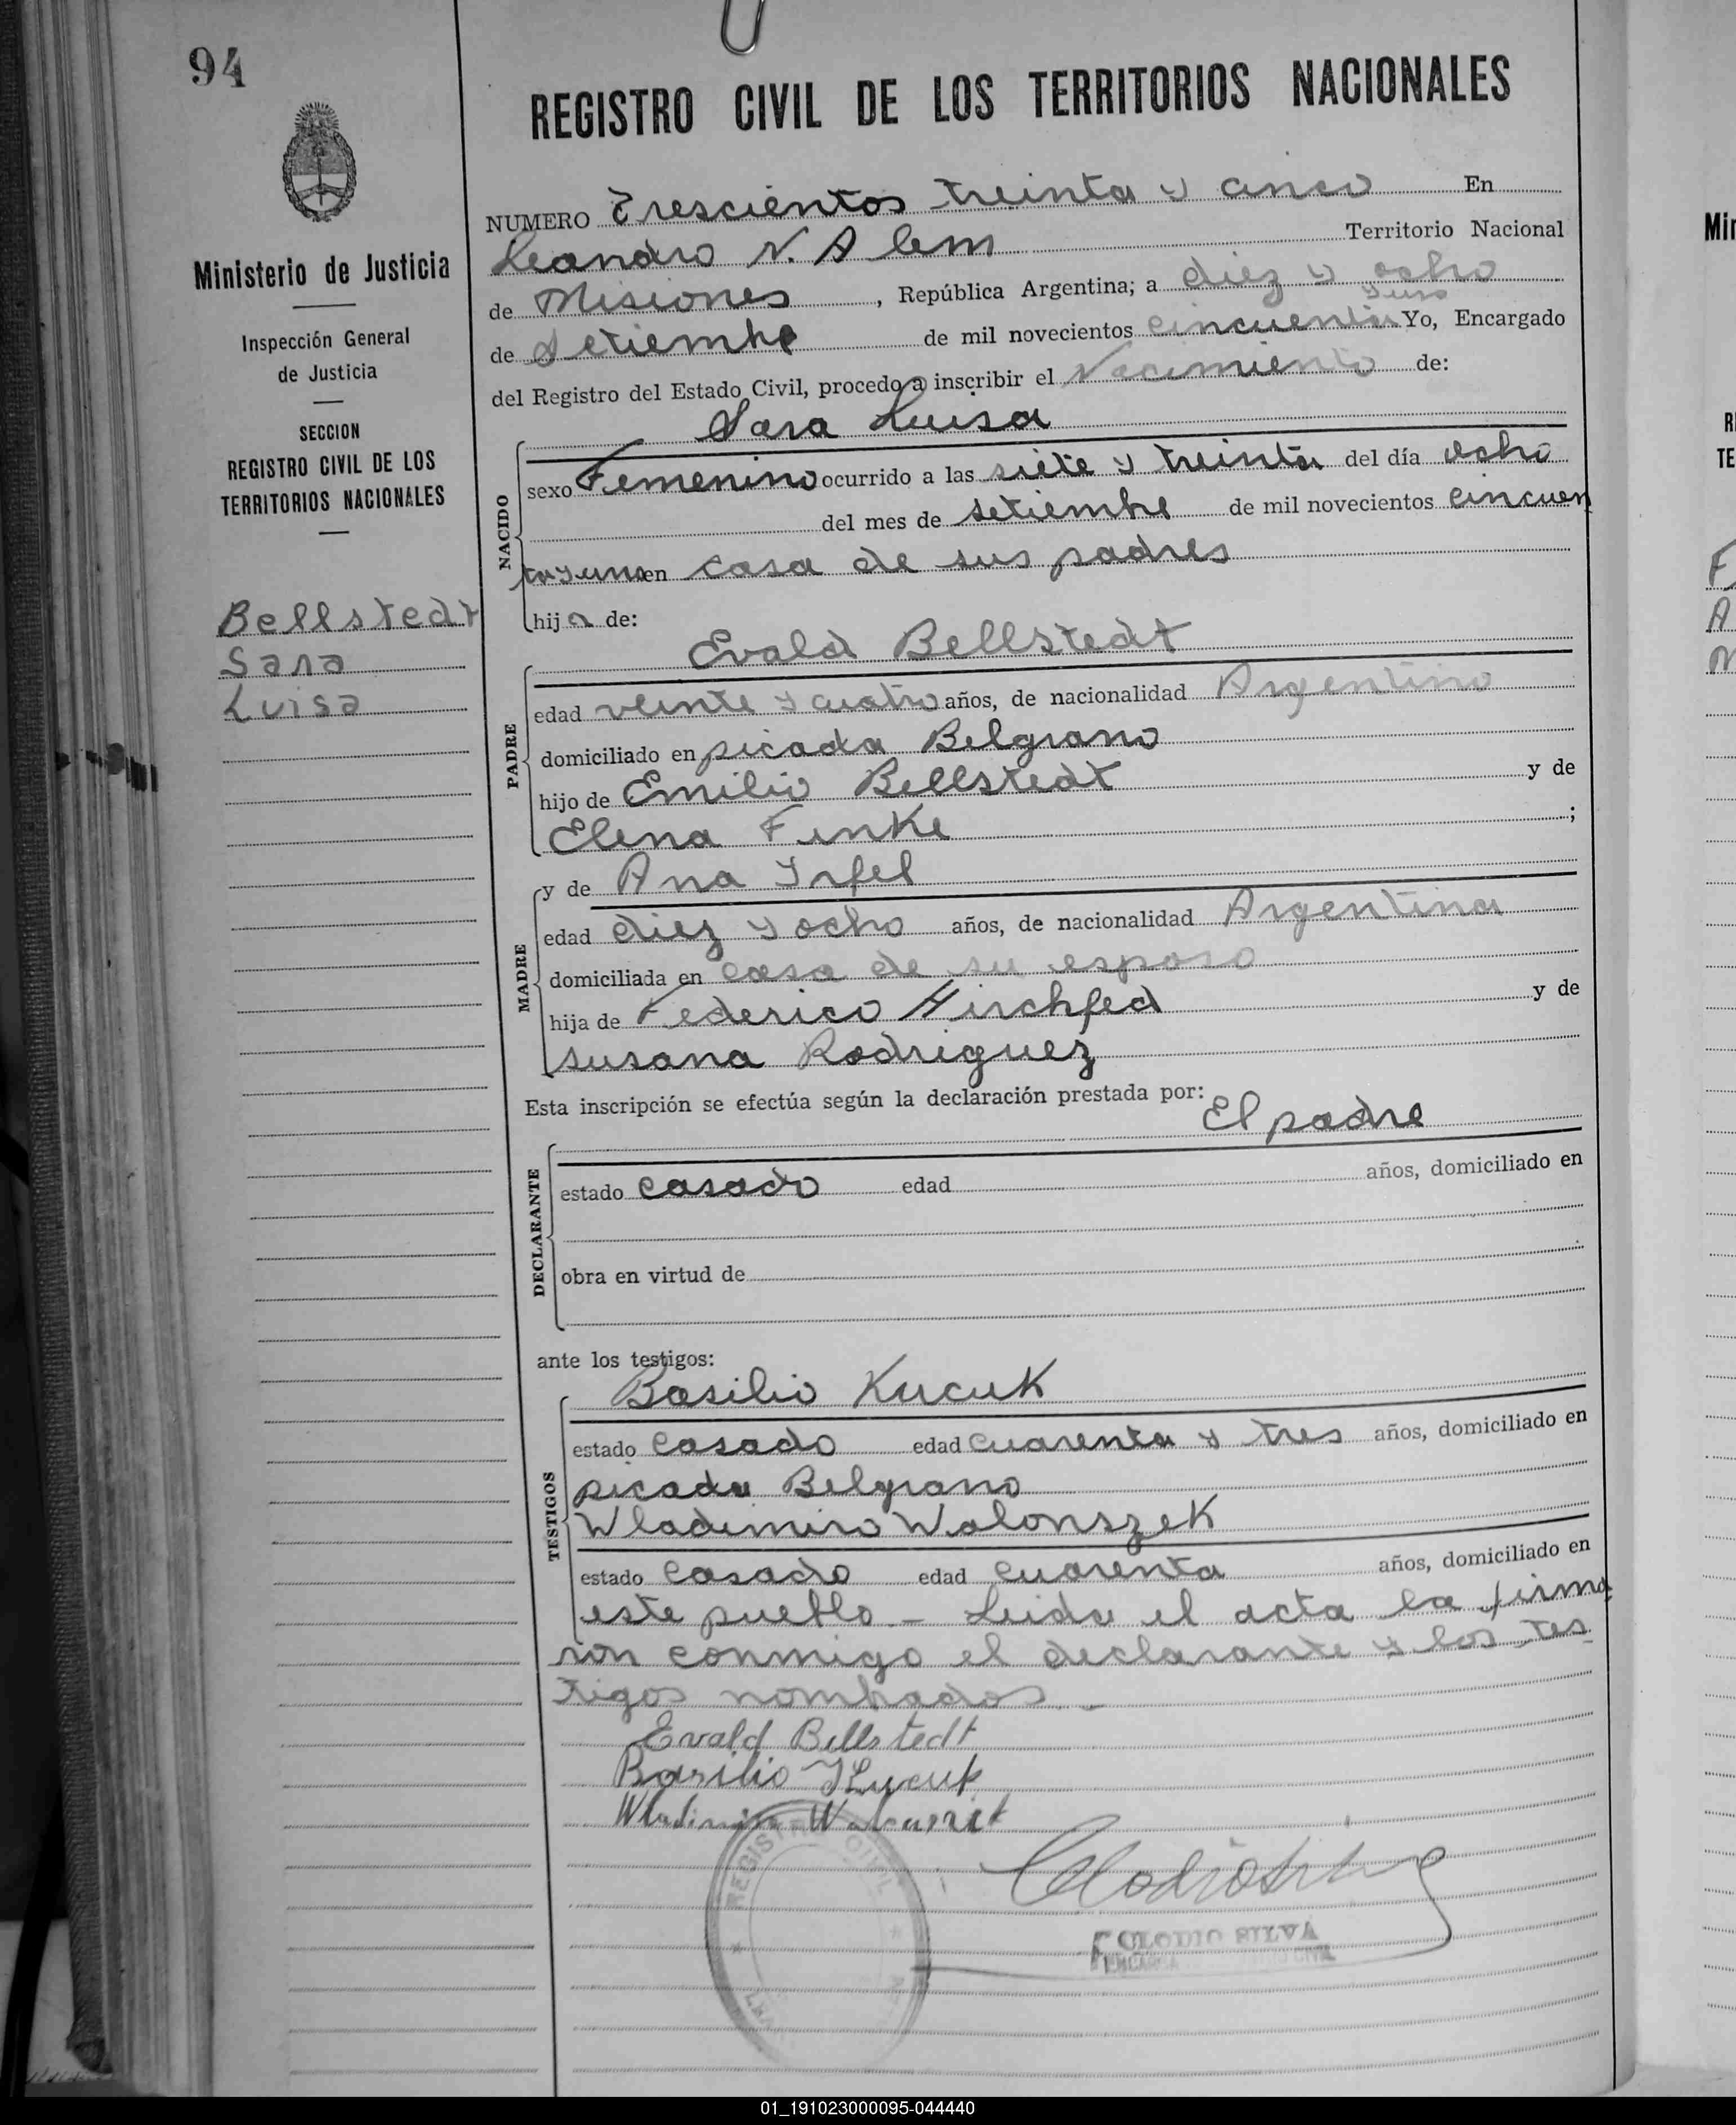 94
REGISTRO CIVIL DE LOS TERRITORIOS NACIONALES
Ministerio de Justicia
Inspección General
de Justicia
SECCION
REGISTRO CIVIL DE LOS
TERRITORIOS NACIONALES
Bellstedt
Sara
Luisa
NUMERO Trescientos treinta y cinco En
Leandro N. Alem Territorio Nacional
de Misiones, República Argentina; a diez y ocho
de Setiembre de mil novecientos cincuenta y uno Yo, Encargado
del Registro del Estado Civil, procedo a inscribir el Nacimiento de:
Sara Luisa
NACIDO
sexo Femenino ocurrido a las siete y treinta del día ocho
del mes de setiembre de mil novecientos cincuen
ta y uno en casa de sus padres
hija de:
Evald Bellstedt
PADRE
edad veinte y cuatro años, de nacionalidad Argentino
domiciliado en picada Belgrano
hijo de Emilio Bellstedt y de
Elena Finke ;
y de Ana
MADRE
edad diez y ocho años, de nacionalidad Argentina
domiciliada en casa de su esposo
hija de Federico Hirchfed y de
susana Rodriguez
Esta inscripción se efectúa según la declaración prestada por:
El padre
DECLARANTE
estado casado edad años, domiciliado en
obra en virtud de
ante los testigos:
Basilio Kucuk
TESTIGOS
estado casado edad cuarenta y tres años, domiciliado en
picada Belgrano
Wladimiro Walonszek
estado casado edad cuarenta años, domiciliado en
este pueblo - Leida el acta la firma
ron conmigo el declarante y los tes
tigos nombrados -
Evald Bellstedt
Basilio
REGISTRO CIVIL
CLODIO SILVA
01_191023000095-044440